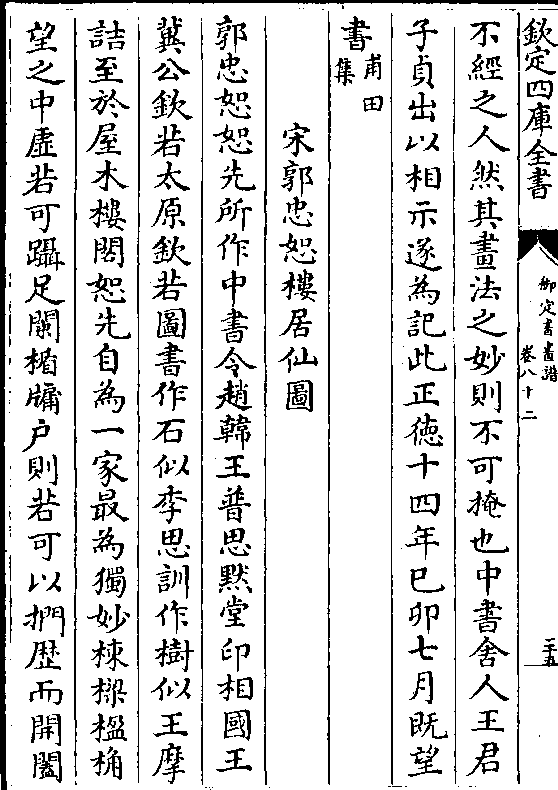 欽定四庫全書
御定書畫譜
卷八十二
二十五
不經之人然其畫法之妙則不可掩也中書舍人王君
子貞出以相示遂為記此正德十四年己卯七月既望
甫田
書集
宋郭忠恕樓居仙圖
郭忠恕恕先所作中書令趙韓王普思默堂印相國王
冀公欽若太原欽若圖書作石似李思訓作樹似王摩
詰至於屋木樓閣恕先自為一家最為獨妙棟樑楹桷
望之中虛若可躡足闌楯牖户則若可以捫歴而開闔